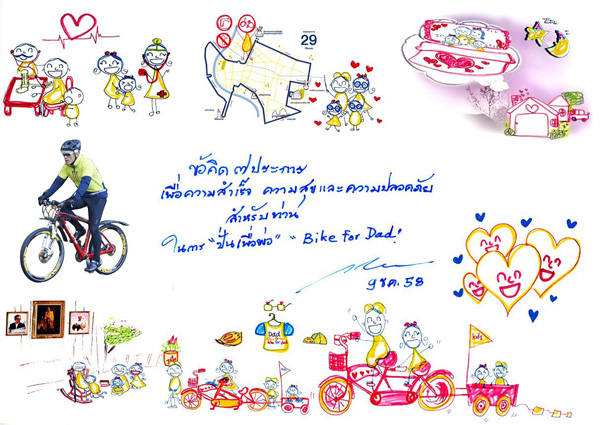 29
ข้อคิด ๗ ประการ
เพื่อความสำเร็จ ความสุขและความปลอดภัย
สำหรับท่าน
ในการ "ปั่นเพื่อพ่อ" "Bike for Dad"
ธค. 58
Dad